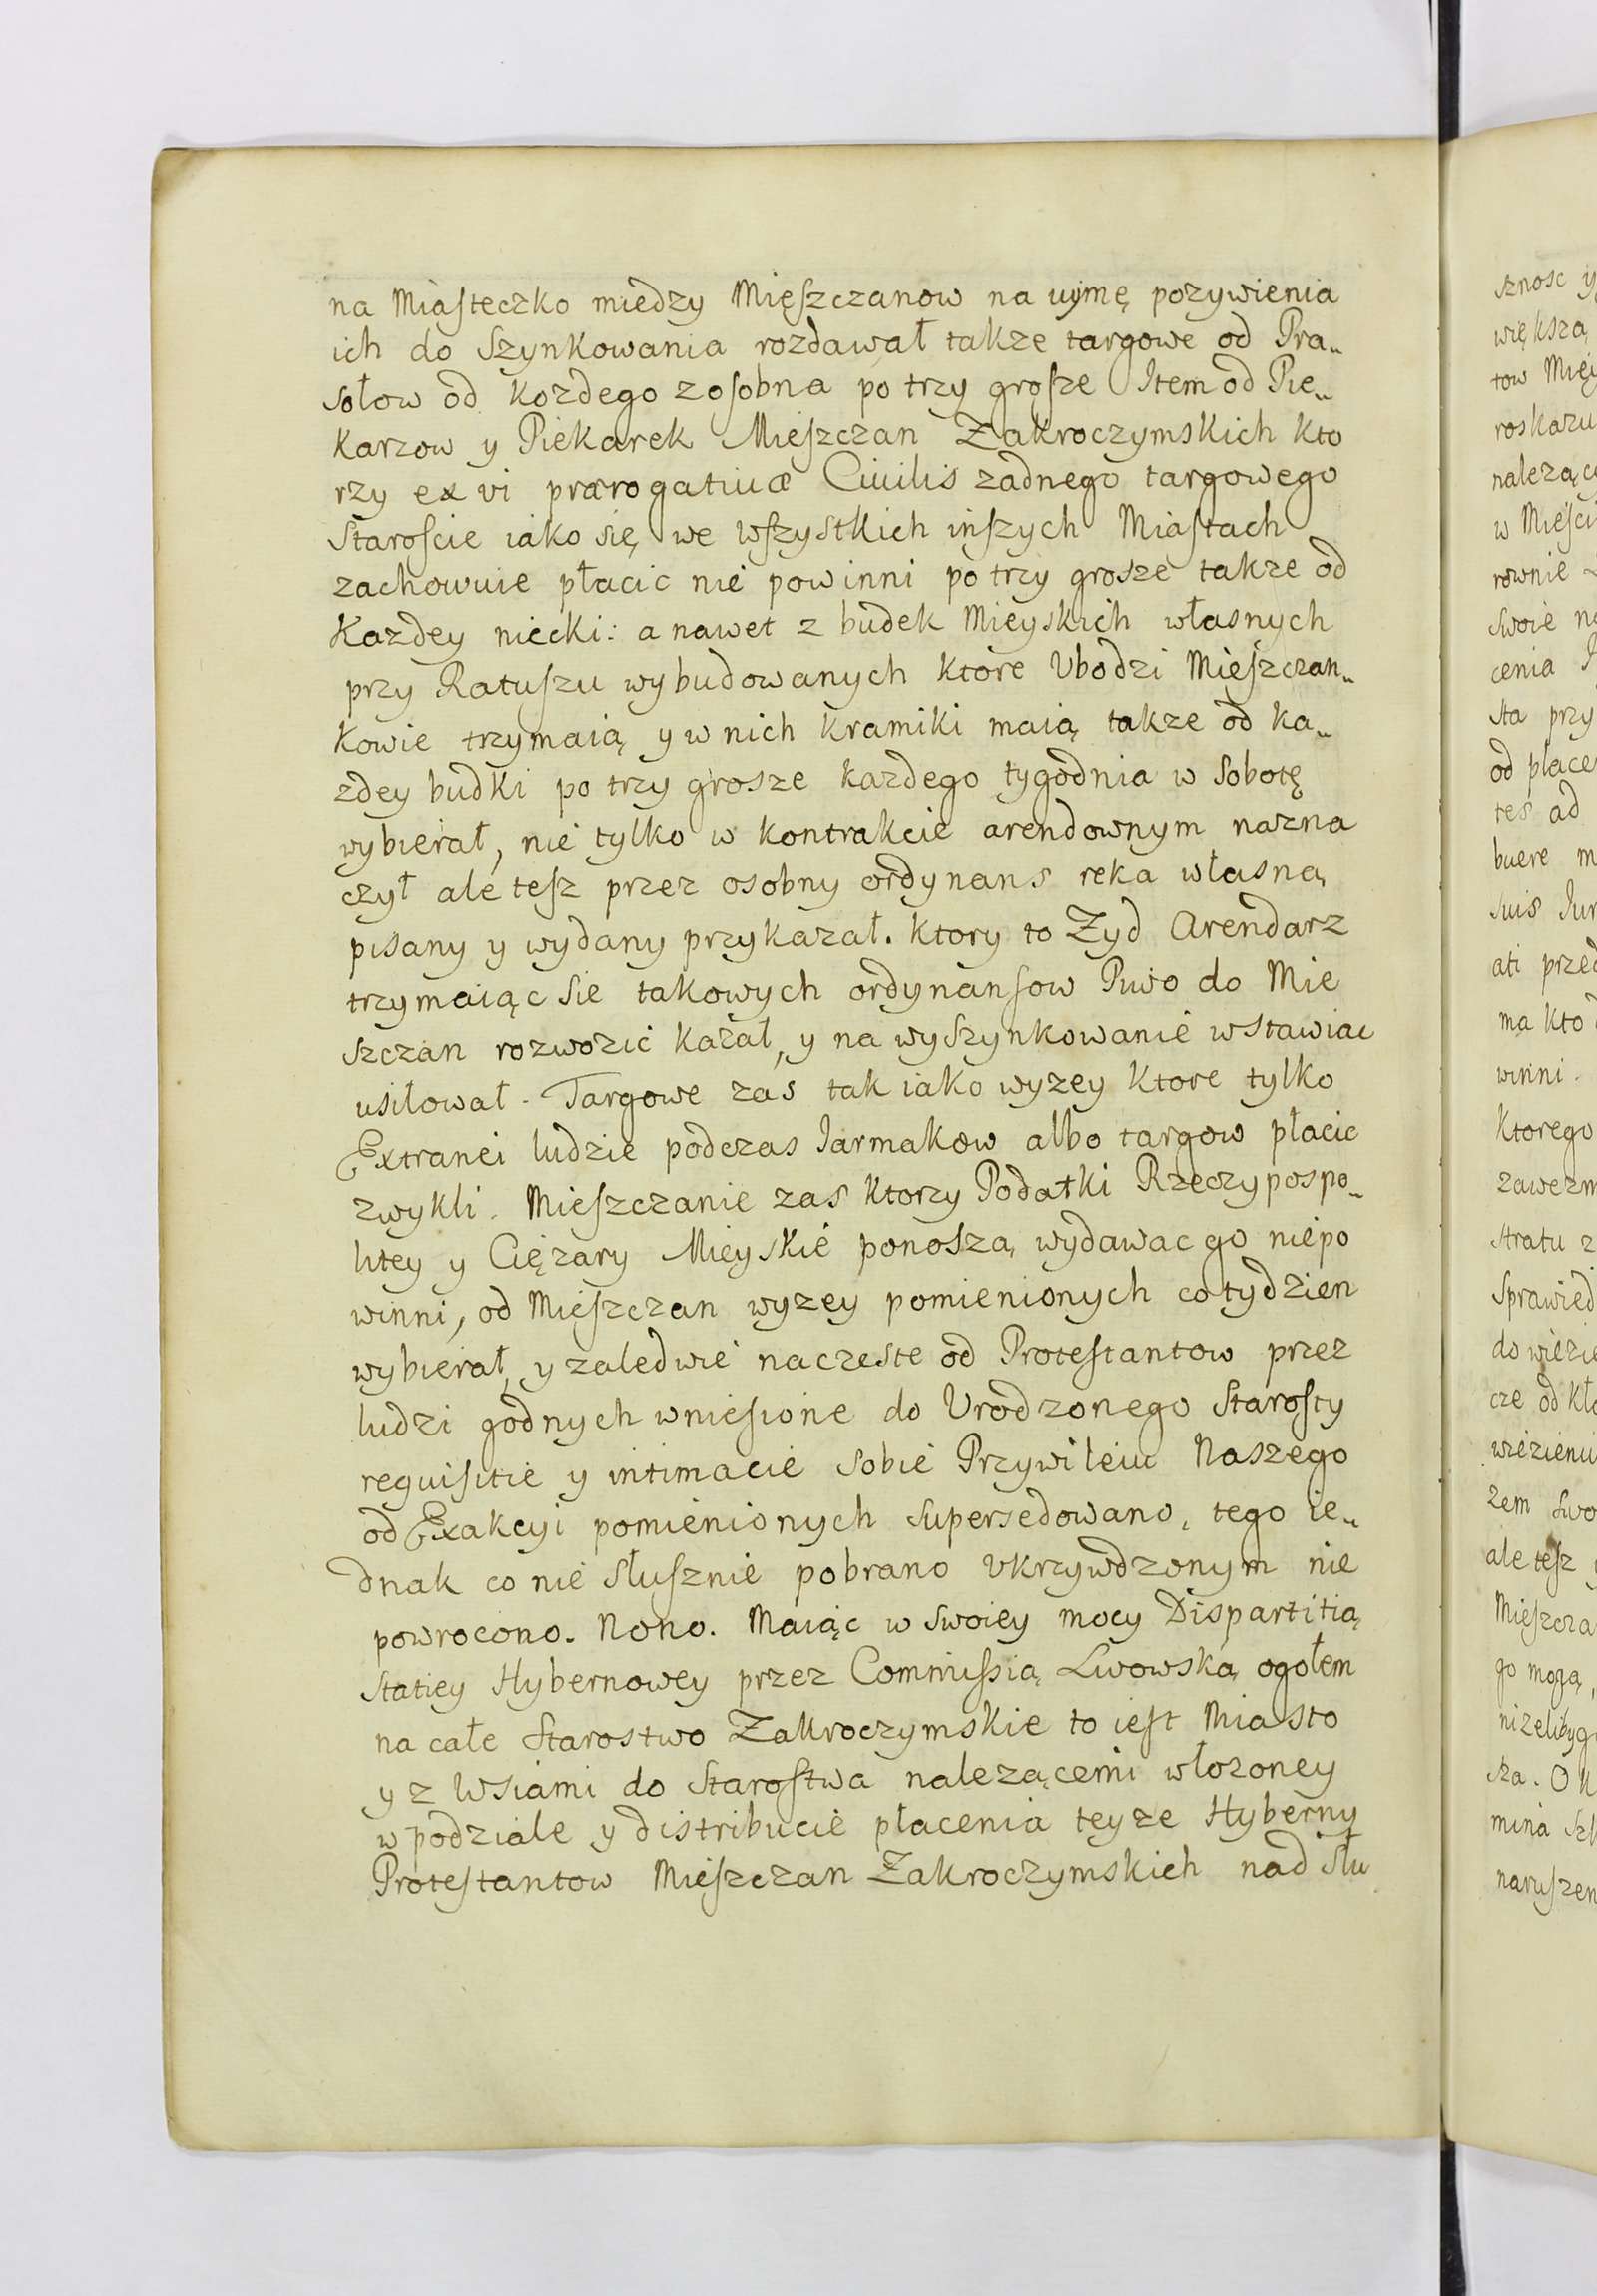 na Miasteczko miedzy Mięszczanow na uymę pozywienia
ich do Szynkowania rozdawał takze targowe od Pra„
sołow od kozdego zosobna po trzy grosze Item od Pie„
karzow y Piekarek Mieszczan Zakroczymskich kto
rzy ex vi prærogatiuæ Ciuilis zadnego targowego
Staroscie iako się we wszystkich inszych Miastach
zachowuie płacic nie powinni po trzy grosze takze od
Kazdey niecki: a nawet z budek Mieyskich własnych
przy Ratuszu wybudowanych ktore Vbodzi Mieszczan„
kowie trzymaią y w nich kramiki maią takze od ka„
zdey budki po trzy grosze kazdego tygodnia w Sobotę
wybierał, nie tylko w kontrakcie arendownym nazna
czył ale tesz przez osobny ordynans reka własną
pisany y wydany przykazał. Ktory to Zyd Arendarz
trzymaiąc sie takowych ordynansow Piwo do Mie
szczan rozwozic kazał, y na wyszynkowanie wstawiac
usiłował. Targowe zas tak iako wyzey ktore tylko
Extranei ludzie podczas Iarmakow albo targow płacic
zwykli. Mieszczanie zas ktorzy Podatki Rzeczypospo„
litey y Ciężary Mieyskie ponoszą wydawac go niepo
winni, od Mieszczan wyzey pomienionych co tydzien
wybierał, y zaledwie na czeste od Protestantow przez
ludzi godnych wniesione do Vrodzonego Starosty
requisitie y intimacie sobie Przywileiu Naszego
od Exakcyi pomienionych supersedowano, tego ie„
dnak co nie słusznie pobrano vkrzywdzonym nie
powrocono. Nono. Maiąc w swoiey mocy Dispartitią
statiey Hybernowey przez Commissią Lwowską ogołem
na całe Starostwo Zakroczymskie to iest Miasto
y z Wsiami do Starostwa nalezącemi włozoney
w podziale y distribucie płacenia teyze Hyberny
Protestantow Mieszczan Zakroczymskich nad słu
sznosc
większą
tow
roskazu
nalezący
w
rownie
swoie
cenia
sta przy
od płace
tes ad
buere
suis Iur
ati przed
ma kto
winni.
Ktorego
zawezm
stratu z
Sprawied
do wiezie
cze od kło
wiezieniu
zem swo
ale tesz
Mieszcza
go mogą,
nizeliby
sza.
mina
naruszen